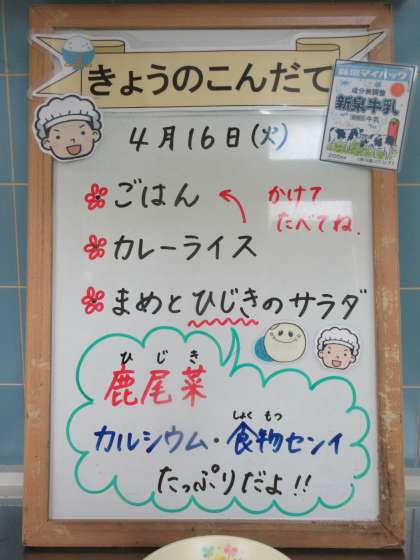 きょうのこんだて
4月16日(火)
ごはん
かけて
たべてね.
カレーライス
まめとひじきのサラダ
ひじき
鹿尾菜
しょく もつ
カルシウム・食物センイ
たっぷりだよ!!
新泉マイパック
成分無調整
新泉牛乳
200ml